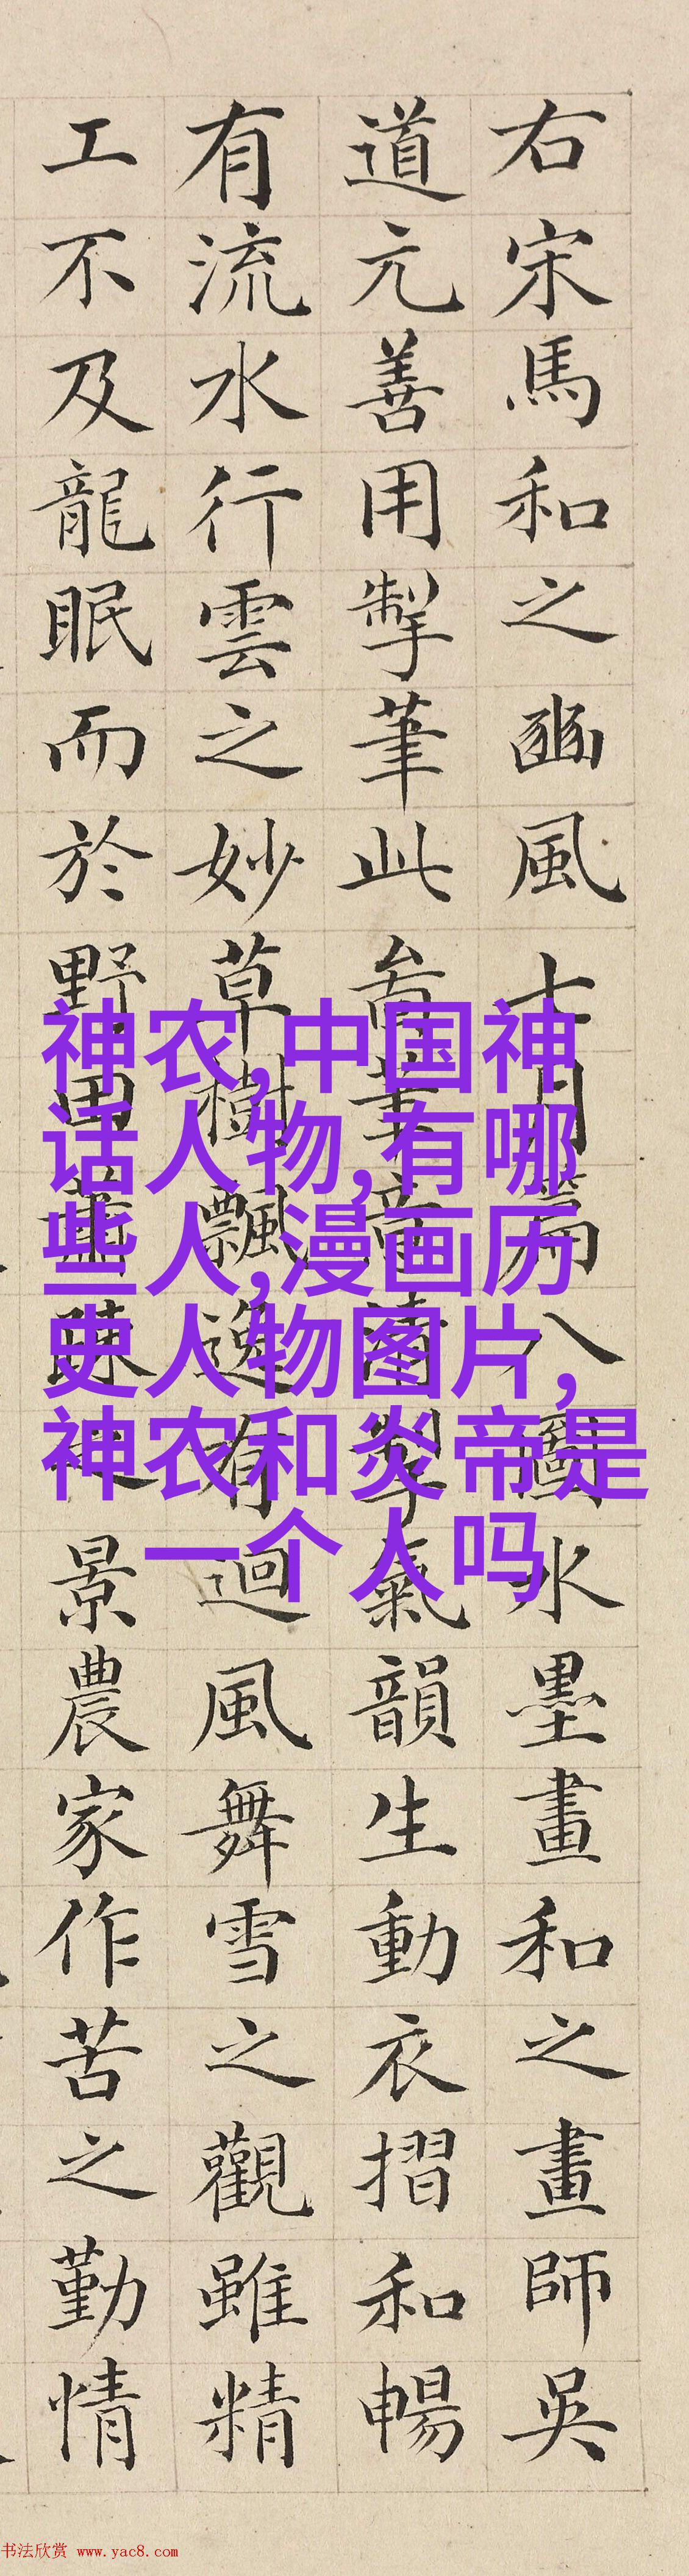 右宋馬和之豳風七月篇八圖水墨畫和之畫師吳
道元善用掣筆此意清掣氣韻生動衣摺和暢
有流水行雲之妙草樹飄逸有迴風舞雪之觀雖精
工不及龍眠而於野田疎之景農家作苦之勤情
神农,中国神
话人物,有哪
些人,漫画历
史人物图片,
神农和炎帝是
一个人吗
书法欣赏 www.yac8.com